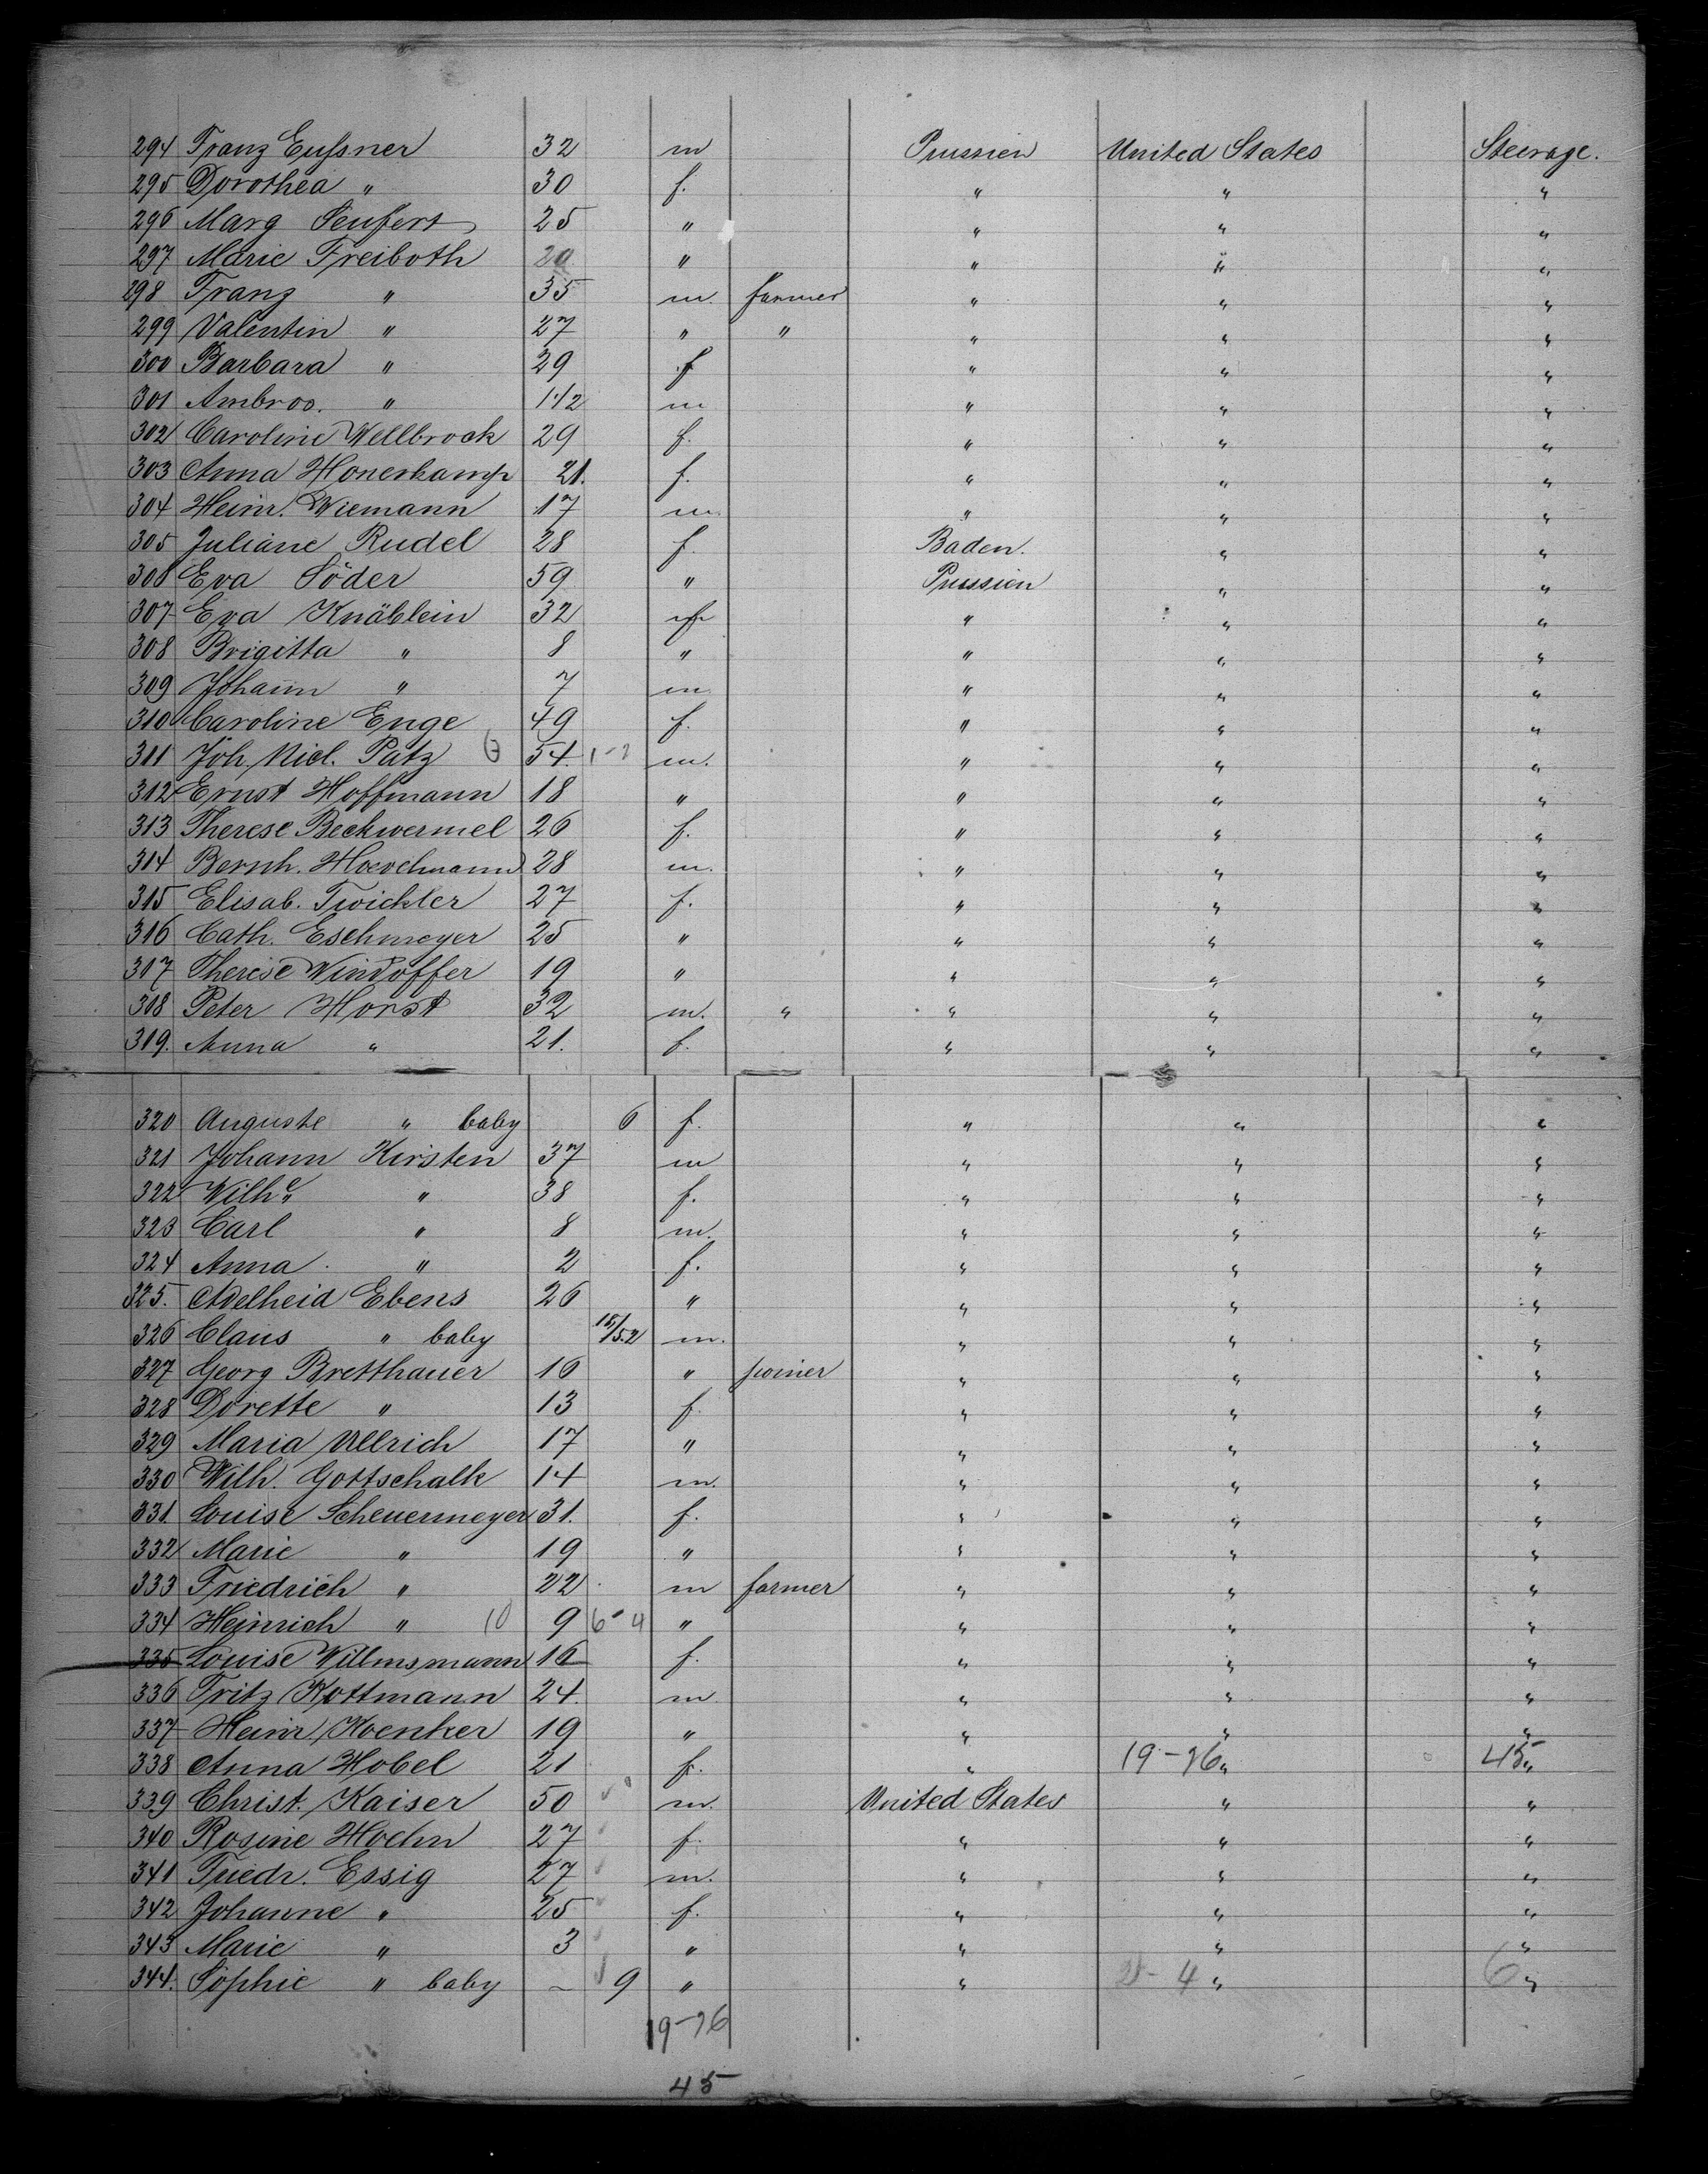 294 Franz Eußner 32 m Prussien United States Steerage.
295 Dorothea " 30 f. " " "
296 Marg Seufert 25 " " " "
297 Marie Freiboth 20 " " " "
298 Franz " 35 m. farmer " " "
299 Valentin " 27 " " " " "
300 Barbara " 29 f " " "
301 Ambros. " 1 1/2 m " " "
302 Caroline Wellbrock 29 f. " " "
303 Anna Honerkamp 21. f. " " "
304 Heinr. Wiemann 17 m. " " "
305 Juliane Rudel 28 f. Baden. " "
306 Eva Söder 59 " Prussien " "
307 Eva Knäblein 32 f " " "
308 Brigitta " 8 " " " "
309 Johann " 7 m " " "
310 Caroline Enge 49 f. " " "
311 Joh. Nicl. Patz 54. m. " " "
312 Ernst Hoffmann 18 " " " "
313 Therese Beckwermel 26 f. " " "
314 Bernh. Hoevelmann 28 m. " " "
315 Elisab. Twickler 27 f. " " "
316 Cath. Eschmeyer 25 " " " "
317 Therese Windoffer 19 " " " "
318 Peter Horst 32 m. " " " "
319. Anna " 21. f. " " "
320 Auguste " baby 6 f. " " "
321 Johann Kirsten 37 m " " "
322 Wilhe " 38 f. " " "
323 Carl " 8 m. " " "
324 Anna " 2 f. " " "
325. Adelheid Ebens 26 " " " "
326 Claus " baby 15/52 m. " " "
327 Georg Bretthauer 16 " joiner " " "
328 Dorette " 13 f " " "
329 Maria Ullrich 17 " " " "
330 Wilh. Gottschalk 14 m. " " "
331. Louise Scheuermeyer 31. f. " " "
332 Marie " 19 " " " "
333 Friedrich " 22 m farmer " " "
334 Heinrich " 10 9 6-4 " " " "
335 Louise Willmsmann 16 f. " " "
336 Fritz Kottmann 24. m. " " "
337 Heinr. Koenker 19 " " " "
338 Anna Hobel 21 f. " 19-26 " 45 "
339 Christ. Kaiser 50 m. United States " "
340 Rosine Hoehn 27 f. " " "
341 Friedr. Essig 27 m. " " "
342 Johanne " 25 f. " " "
343 Marie " 3 " " " "
344. Sophie " baby 9 " " 4 " 6 "
19-26
45